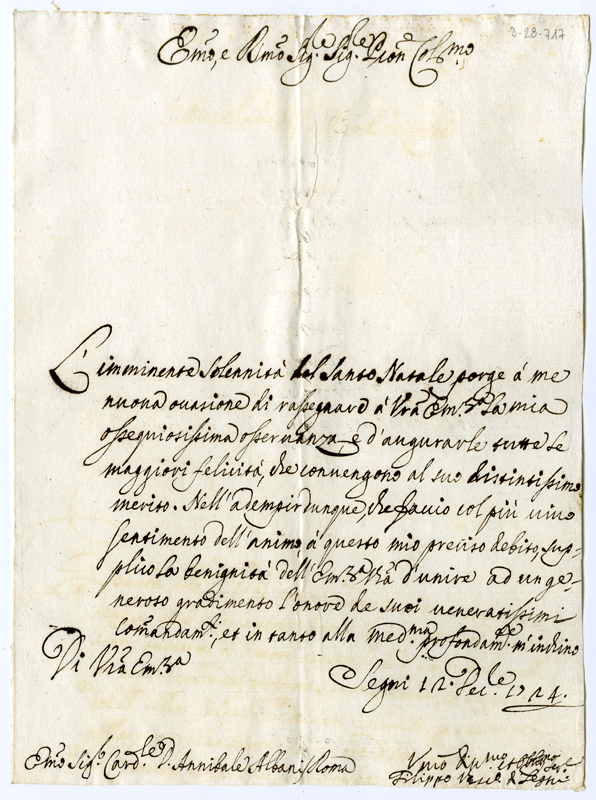 3-28-717
Em̃o, e Rm̃o Sig.re Sig.re P.ron Col.mo
L'imminente Solennità del Santo Natale porge à me
nuova occasione di rassegnare à Vr̃a Em.za la mia
ossequiosissima osservanza, e d'augurarle tutte le
maggiori felicità, che convengono al suo distintissimo
merito. Nell'adempir dunque, che faccio col più vivo
sentimento dell'animo, à questo mio preciso debito, sup-
plico la benignità dell'Em.za Vr̃a d'unire ad un ge-
neroso gradimento l'onore de suoi veneratissimi
comandam.ti, et in tanto alla med.ma profondam.te m'inchino
Di Vr̃a Em.za
Segni 12. Dec.re 1724.
Em̃o Sig.re Card.le D. Annibale Albani Roma
Filippo Vesc.o di Segni